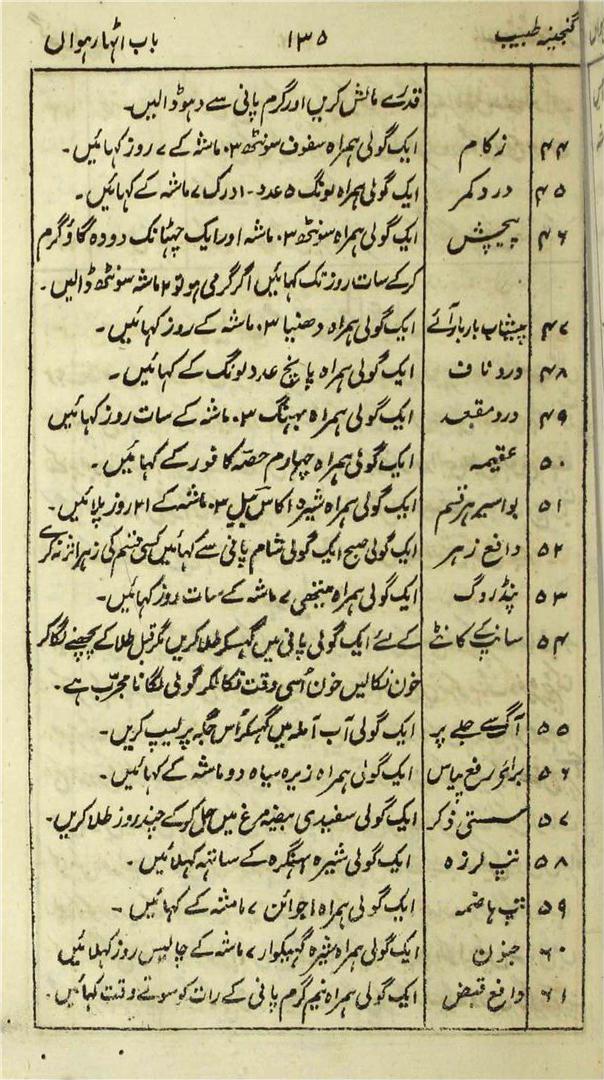 گنجینہ طبیب ۱۳۵ باب اٹھارہواں
قدرے مالش کریں اور گرم پانی سے دہو ڈالیں۔
۴۴ زکام ایک گولی ہمراہ سفوف سونٹھ ۳ ماشہ کے ۷ روز کہائیں۔
۴۵ درد کمر ایک گولی ہمراہ لونگ ۵ عدد۔ ادرک ۷ ماشہ کے کہائیں۔
۴۶ پیچش ایک گولی ہمراہ سونٹھ ۳ ماشہ اور ایک چھٹانک دودہ گاؤ گرم
کرکے سات روز تک کہائیں اگر گرمی ہو تو ۲ ماشہ سونٹھ ڈالیں۔
۴۷ پیشاب بار بار آئے ایک گولی ہمراہ دھنیا ۳ ماشہ کے روز کہائیں۔
۴۸ درد ناف ایک گولی ہمراہ پانچ عدد لونگ کے کہائیں۔
۴۹ درد مقعد ایک گولی ہمراہ بہینگ ۳ ماشہ کے سات روز کہائیں
۵۰ عقیمہ ایک گولی ہمراہ چہارم حصہ کافور کے کہائیں۔
۵۱ بواسیر ہر قسم ایک گولی ہمراہ شیرہ اکاس بیل ۳ ماشہ کے ۲۱ روز پلائیں۔
۵۲ دافع زہر ایک گولی صبح ایک گولی شام پانی سے کہائیں کسی قسم کی زہر اثر نہ کرے
۵۳ پنڈ روگ ایک گولی ہمراہ میتھی ۷ ماشہ کے سات روز کہائیں۔
۵۴ سانپ کے کاٹنے کے لئے ایک گولی پانی میں گھسکر طلا کریں مگر قبل طلا کے پچھنے لگاکر
خون نکالیں خون اُسی وقت نکالکر گولی لگانا مجرب ہے۔
۵۵ آگ سے جلے پر ایک گولی آب آملہ میں گھسکر اُس جگہ پر لیپ کریں۔
۵۶ برائے رفع پیاس ایک گولی ہمراہ زیرہ سیاہ دو ماشہ کے کہائیں۔
۵۷ سستی ذکر ایک گولی سفیدی بیضہ مرغ میں حل کرکے چند روز طلا کریں۔
۵۸ تپ لرزہ ایک گولی شیرہ بہنگرہ کے ساتھ کہلائیں۔
۵۹ تپ ہاضمہ ایک گولی ہمراہ اجوائن ۷ ماشہ کے کہائیں۔
۶۰ جنون ایک گولی ہمراہ شیرہ گہیکوار ۷ ماشہ کے چالیس روز کہلائیں
۶۱ دافع قبض ایک گولی ہمراہ نیم گرم پانی کے رات کو سوتے وقت کہائیں۔